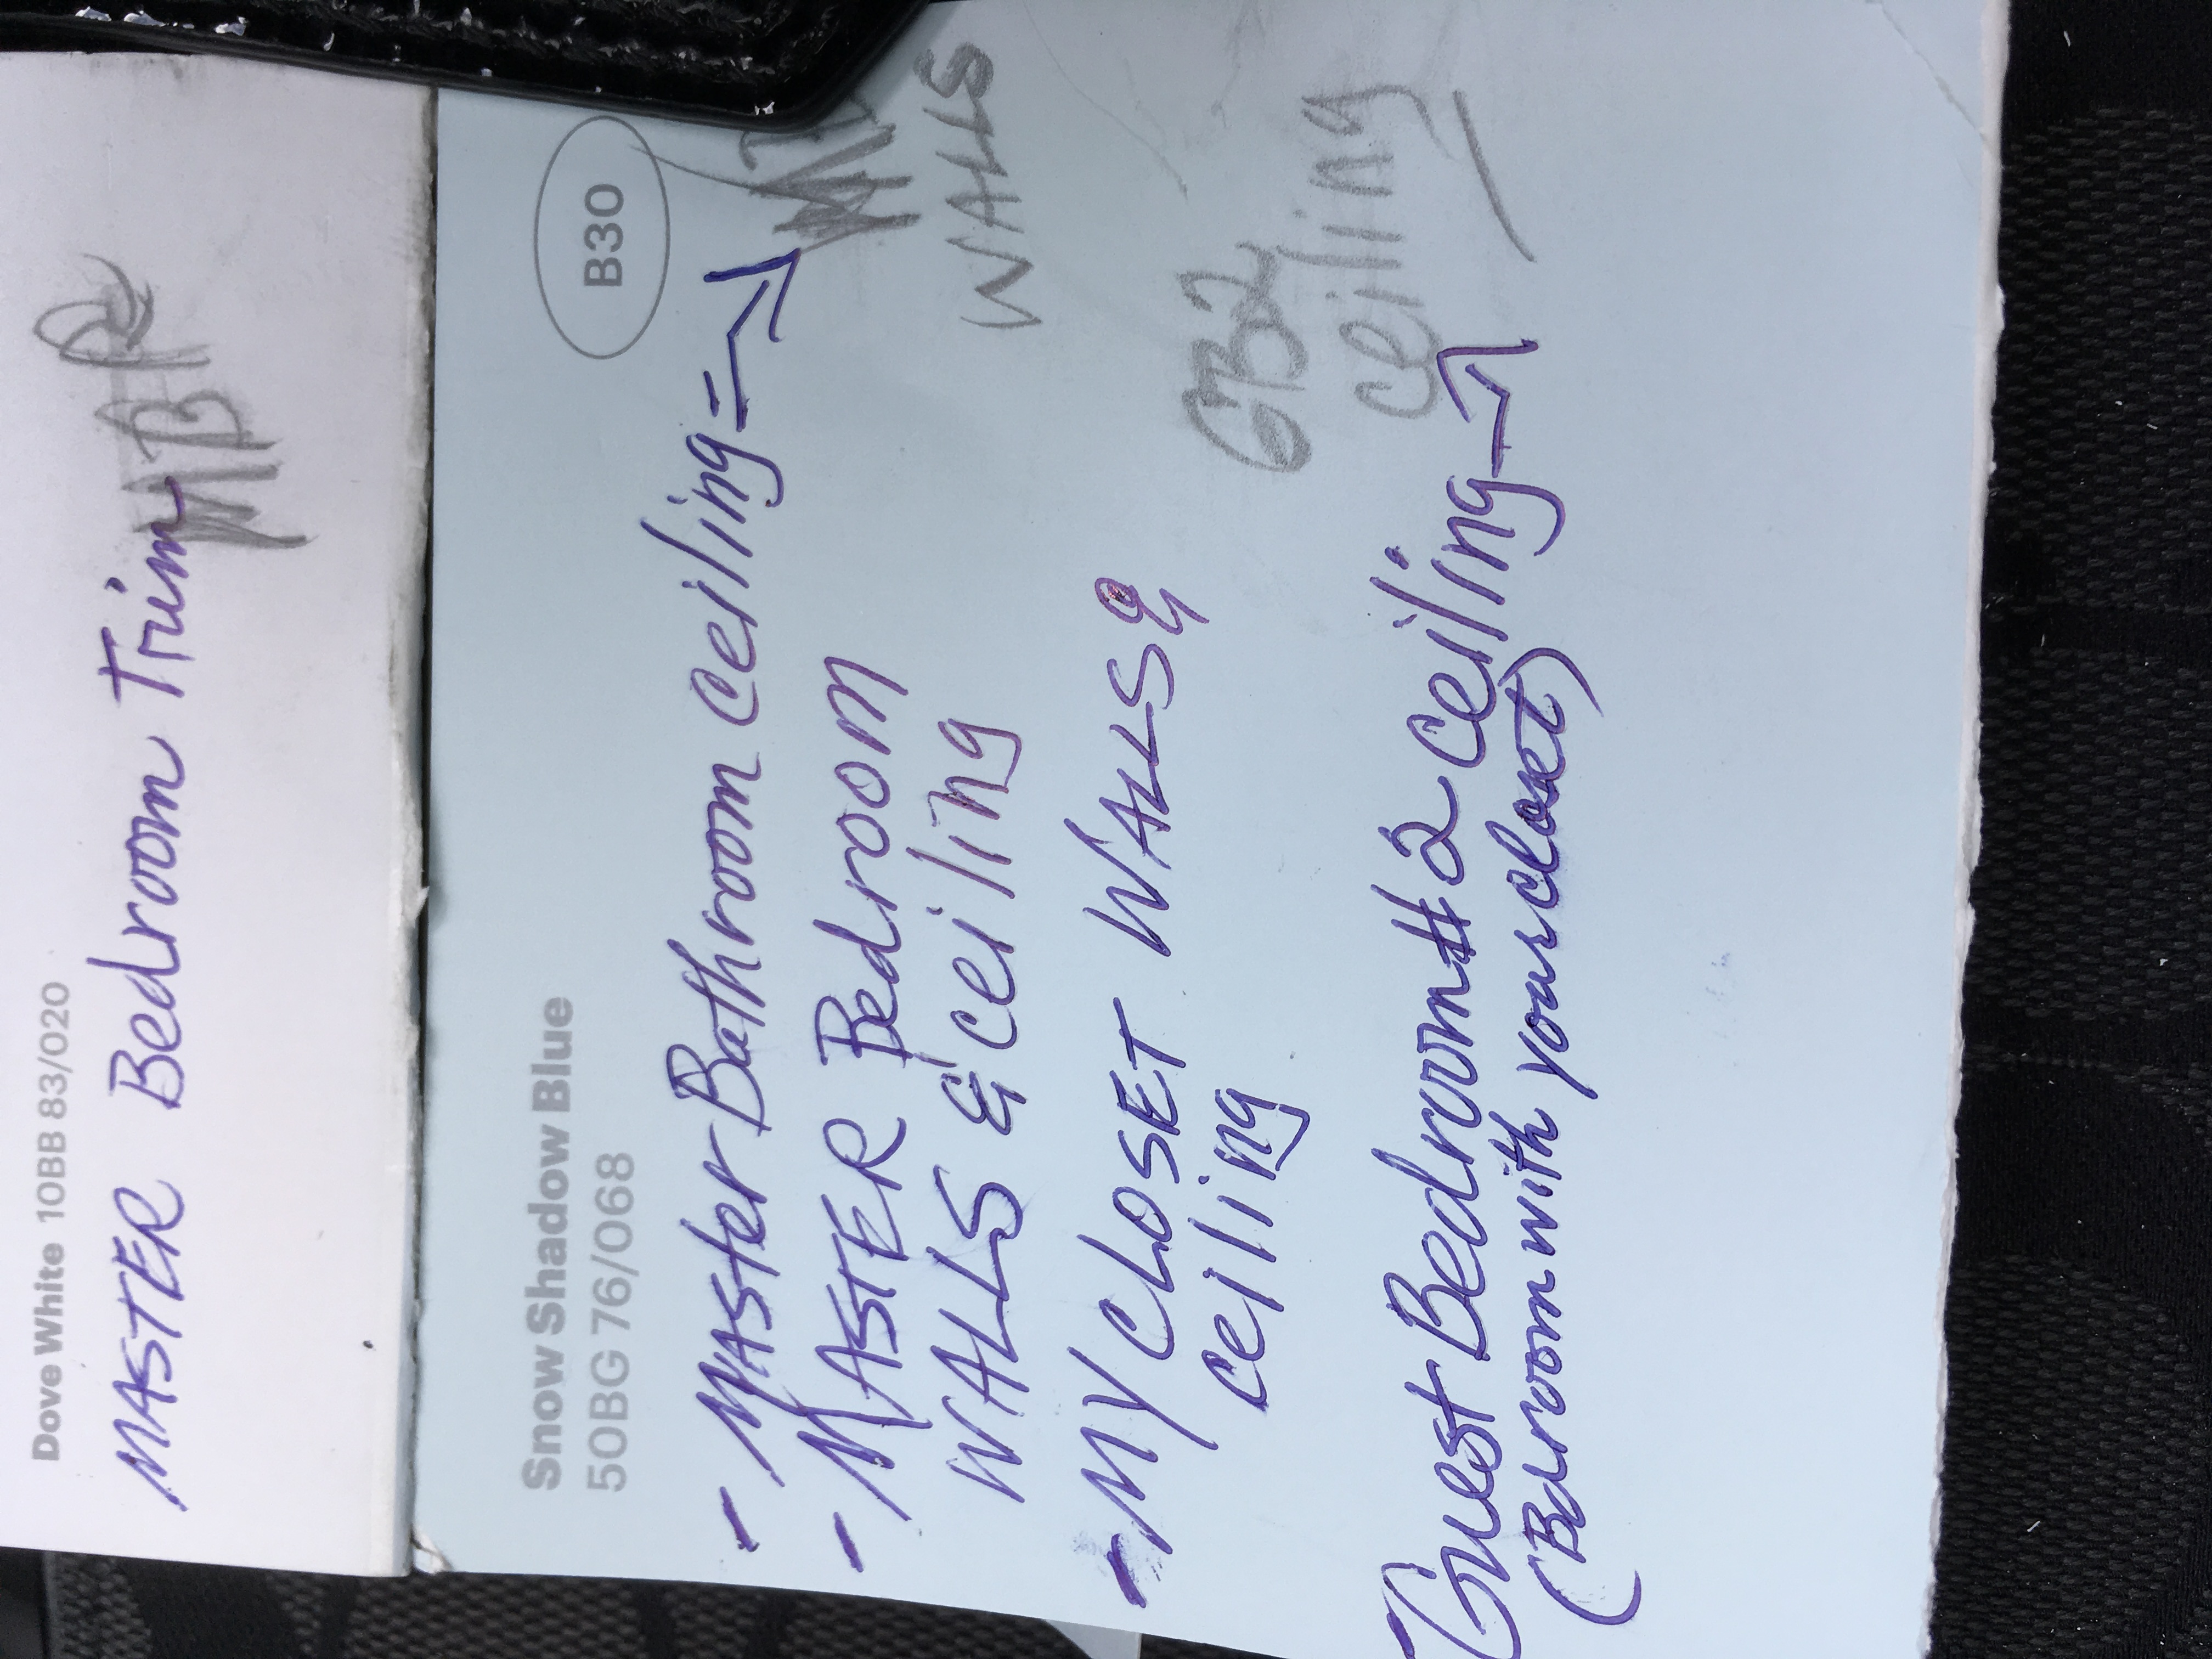 Dove White 10BB 83/020
MASTER Bedroom Trim
MBR
B30
Snow Shadow Blue
50BG 76/068
- MASter Bathroom Ceiling =
WALLS
- MASTER Bedroom
WALLS & Ceiling
- MY CLOSET WALLS &
Ceiling
GB2
Ceiling
- Guest Bedroom # 2 Ceiling
(Bdroom with your closet)